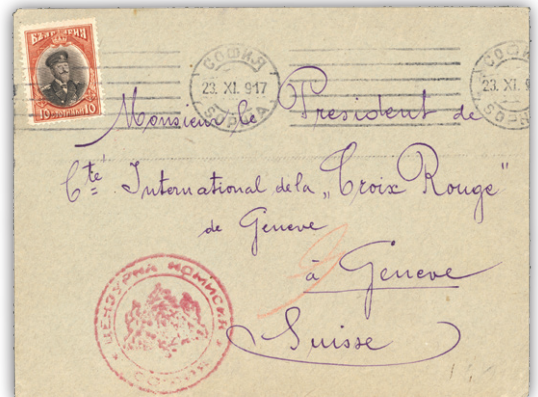 БЪЛГАРИЯ
10 СТОТИНКИ 10
СОФИЯ
23. XI. 917
SOPHIA
СОФИЯ
23. XI. 9
SOPH
Monsieur le President de
Cté International de la „Croix Rouge"
de Geneve
à Geneve
Suisse
ЦЕНЗУРНА КОМИСИЯ
СОФИЯ